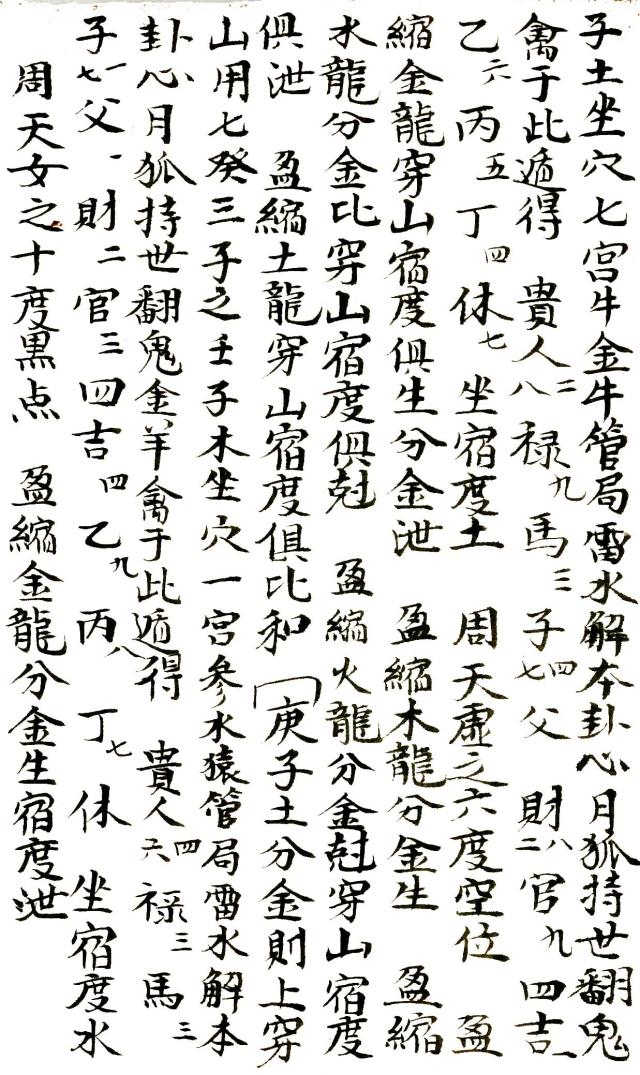 子土坐穴七宮牛金牛管局雷水解本卦心月狐持世翻鬼
禽于此遁得　貴人二八禄九馬三子四七父　財八二官九四吉一
乙六丙五丁四休七坐宿度土　周天虛之六度空位　盈
縮金龍穿山宿度俱生分金泄　盈縮木龍分金生　盈縮
水龍分金比穿山宿度俱尅　盈縮火龍分金尅穿山宿度
俱泄　盈縮土龍穿山宿度俱比和　庚子土分金則上穿
山用七癸三子之壬子木坐穴一宮參水猿管局雷水解本
卦心月狐持世翻鬼金羊禽于此遁得　貴人四六禄三馬三
子一七父一財二官三四吉四乙九丙八丁七休　坐宿度水
周天女之十度黒点　盈縮金龍分金生宿度泄